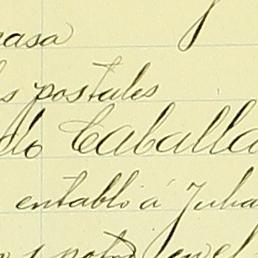 nasa
s postales
do Caballa
entabló á Julia